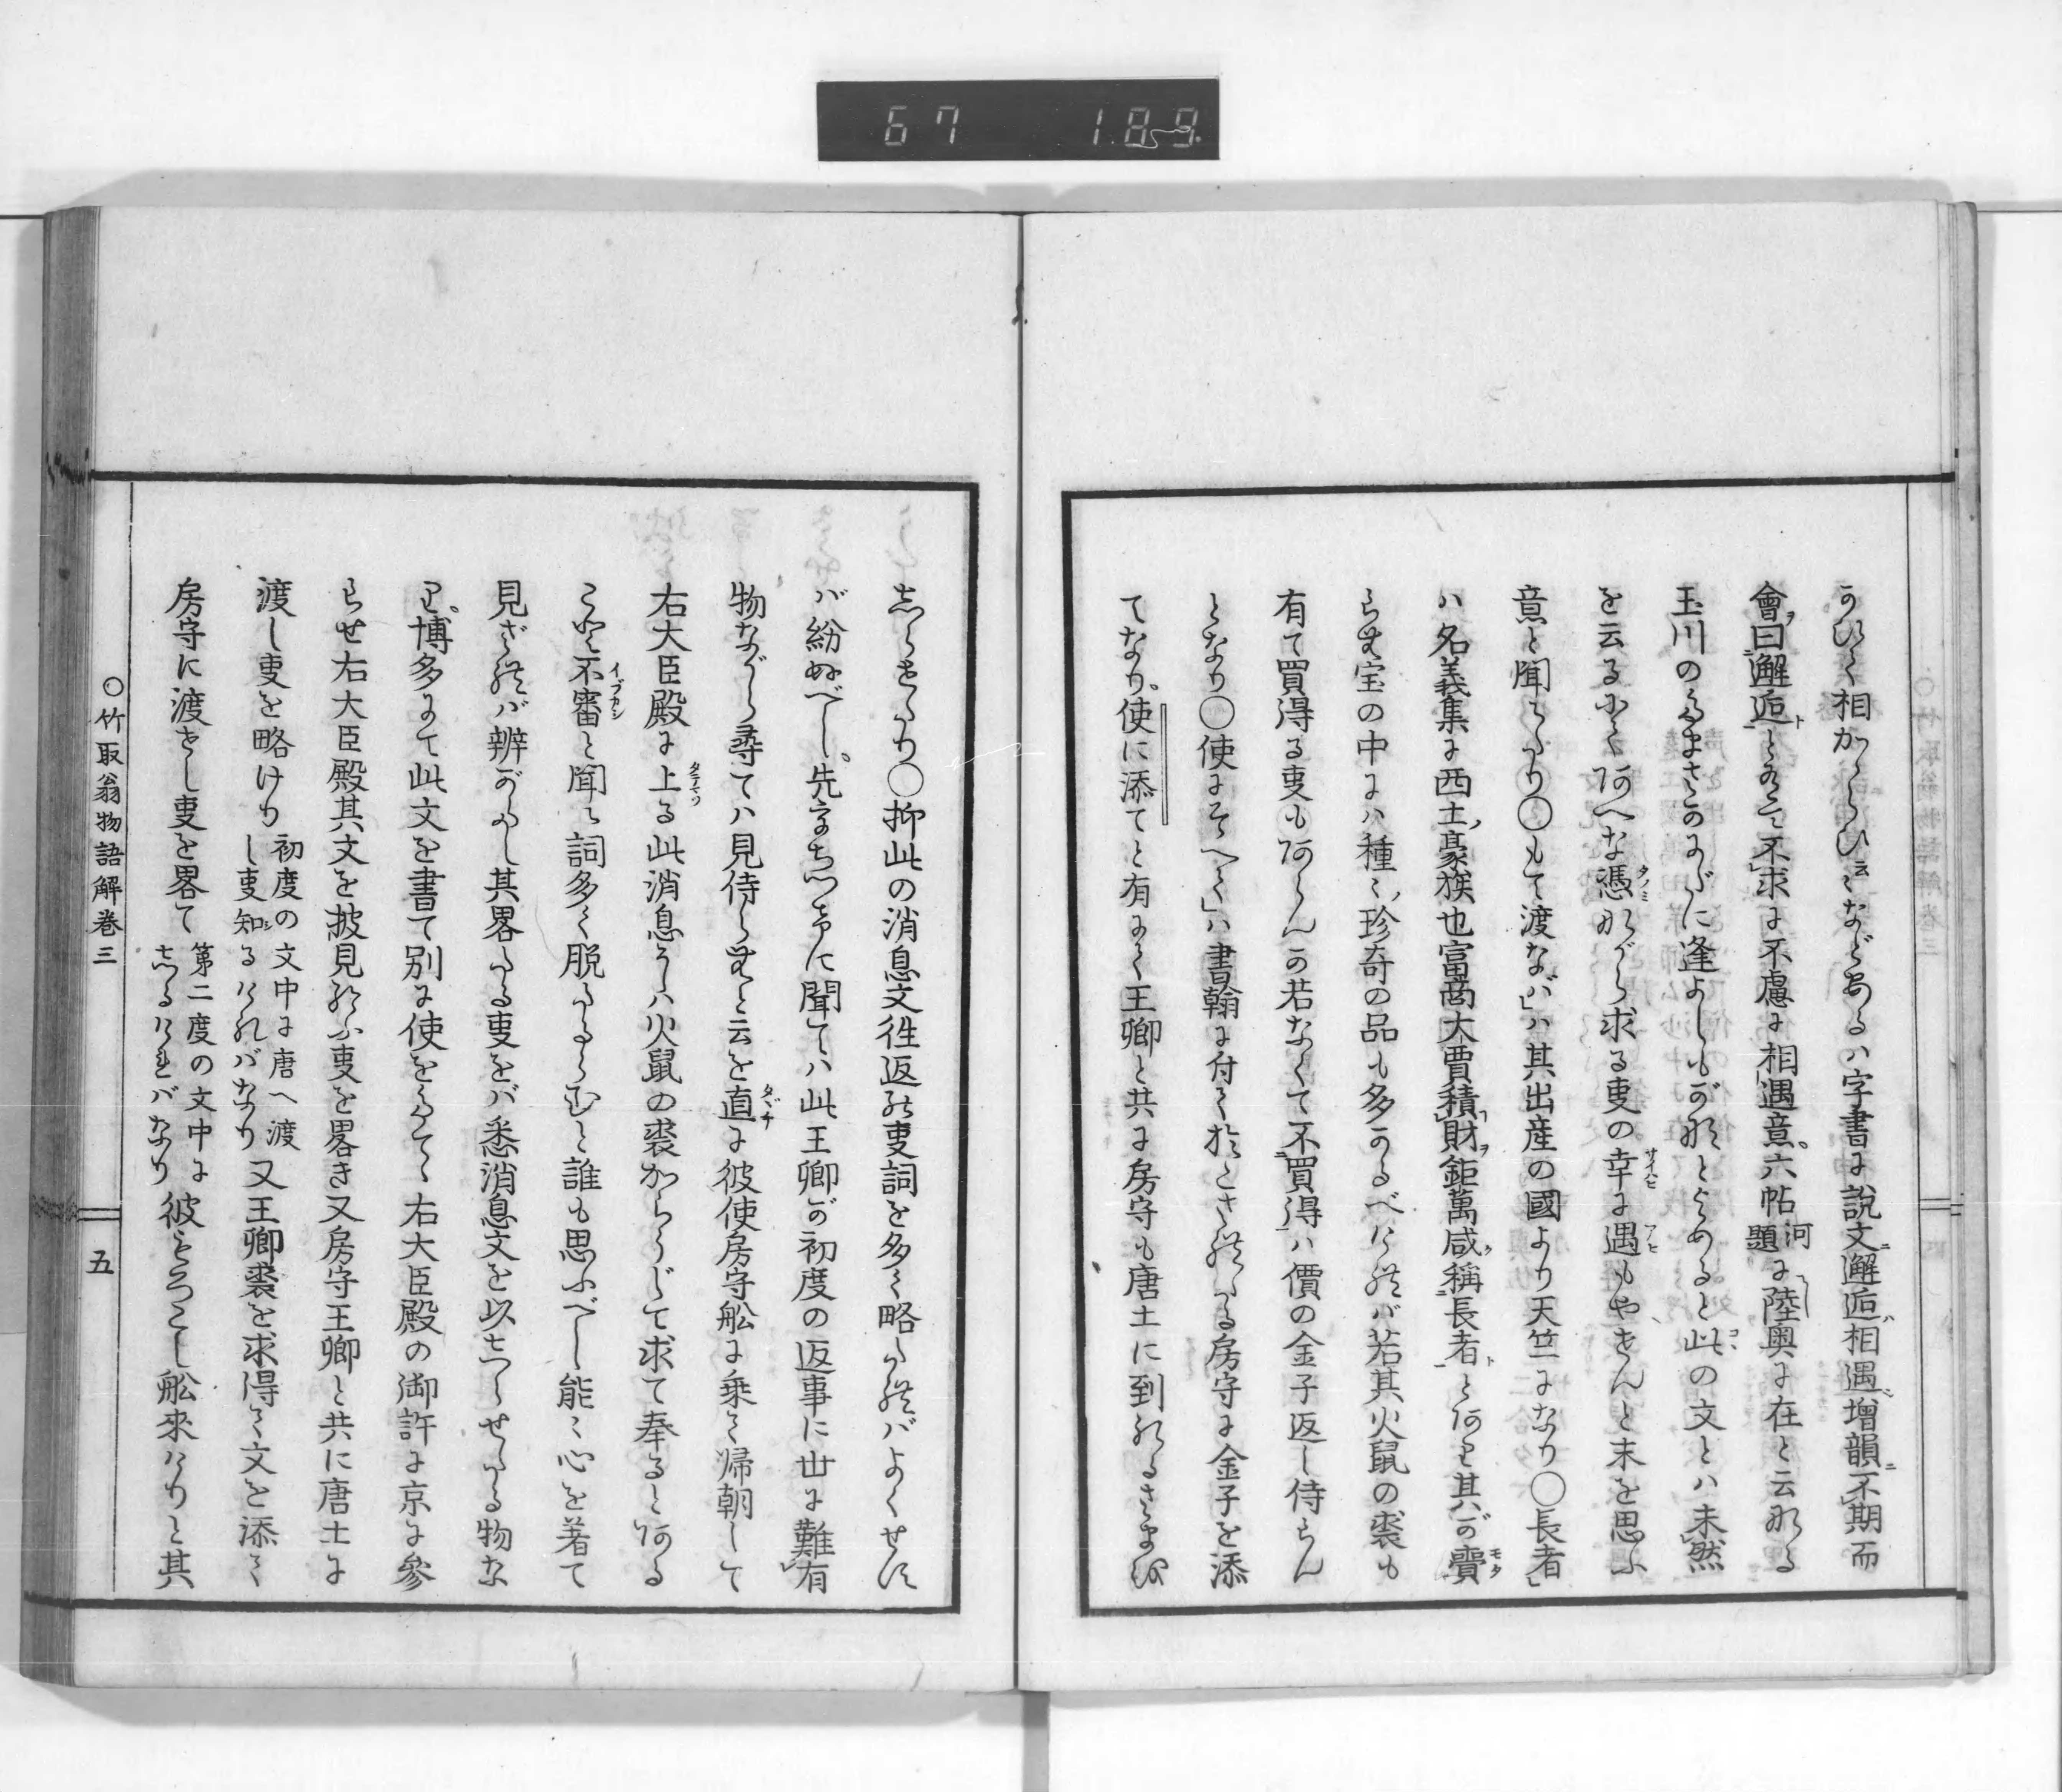 67 189
かひく相かたらひ云々などあるハ字書に説文邂逅相遇増韻不期而
會曰邂逅とありて不求に不慮に相遇意六帖河題に陸奥に在と云なる
玉川のたまさかにだに逢よしもがなとよめると此の文とハ未然
を云るにて何へな憑ながら求る叓の幸に遇もやせんと末を思ふ
意と聞えたり〇もて渡なバハ其出産の國より天竺になり〇長者
ハ名義集に西土豪族也富商大賈積財鉅萬咸稱長者と何り其ハが賷
らむ宝の中にハ種々珍奇の品も多かるべけれバ若其火鼠の裘も
有て買得る叓も何らんか若なくて不買得ハ價の金子返し侍らん
となり〇使にそへてハ書翰に付ておこされたる房守に金子を添
てなり使に添てと有にて王卿と共に房守も唐土に到れるさま
しられたり〇抑此の消息文往返の叓詞を多く略たれバよくせず
バ紛ぬべし先うち聞てハ此王卿が初度の返事に世に難有
物ながら尋てハ見侍らむと云を直に彼使房守舩に乗て帰朝して
右大臣殿に上る此消息にハ火鼠の裘からうじて求て奉ると何る
こと不審と聞え詞多く脱たるらむと誰も思ふべし能々心を著て
見ざれバ辨がたし其畧たる叓をバ悉消息文を以しらせたる物な
り博多にて此文を書て別に使をたてゝ右大臣殿の御許に京に參
らせ右大臣殿其文を披見給ふ叓を畧き又房守王卿と共に唐土に
渡し叓を略けり初度の文中に唐へ渡し叓知るければなり又王卿裘を求得て文を添て
房守に渡せし叓を畧て第二度の文中にしるければなり彼もろこし舩來けりと其
〇竹取翁物語解卷三
五